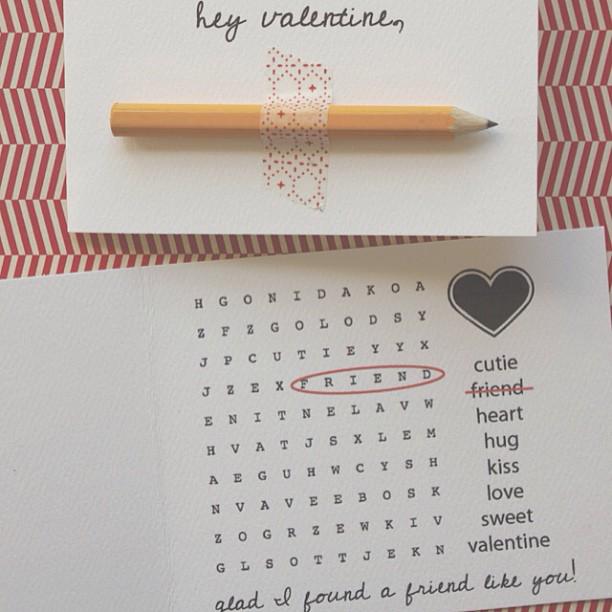 hey valentine,
H G O N I D A K O A
Z F Z G O L O D S Y
J P C U T I E Y Y X
J Z E X F R I E N D
E N I T N E L A V W
H V A T J S X L E M
A E G U H W C Y S H
N V A V E E B O S K
Z O G R Z E W K I V
G L S O T T J E K N
cutie
friend
heart
hug
kiss
love
sweet
valentine
glad I found a friend like you!